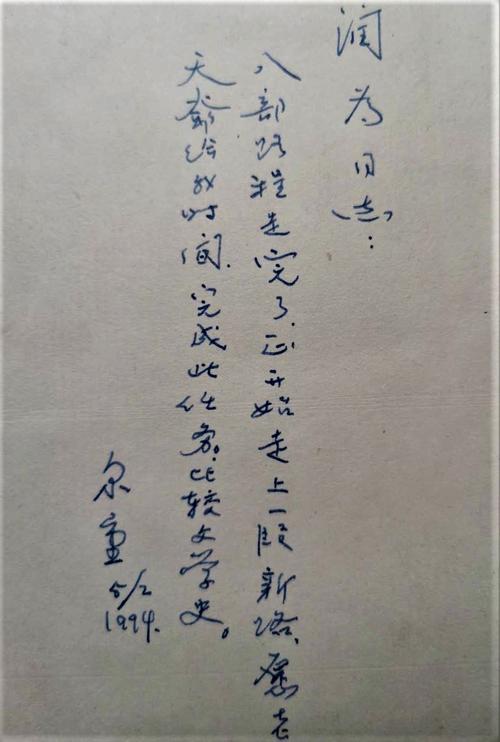 润为同志：
八部路程走完了，正开始走上一段新路，愿老
天爷给我时间，完成此任务。比较文学史。
尔重
5/2
1994.